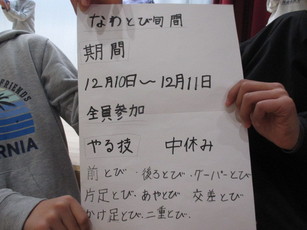 なわとび旬間
期間
12月10日～12月11日
全員参加
やる技 中休み
前とび・後ろとび・グーパーとび
片足とび・あやとび 交差とび
かけ足とび、二重とび、
RIENDS
RNIA